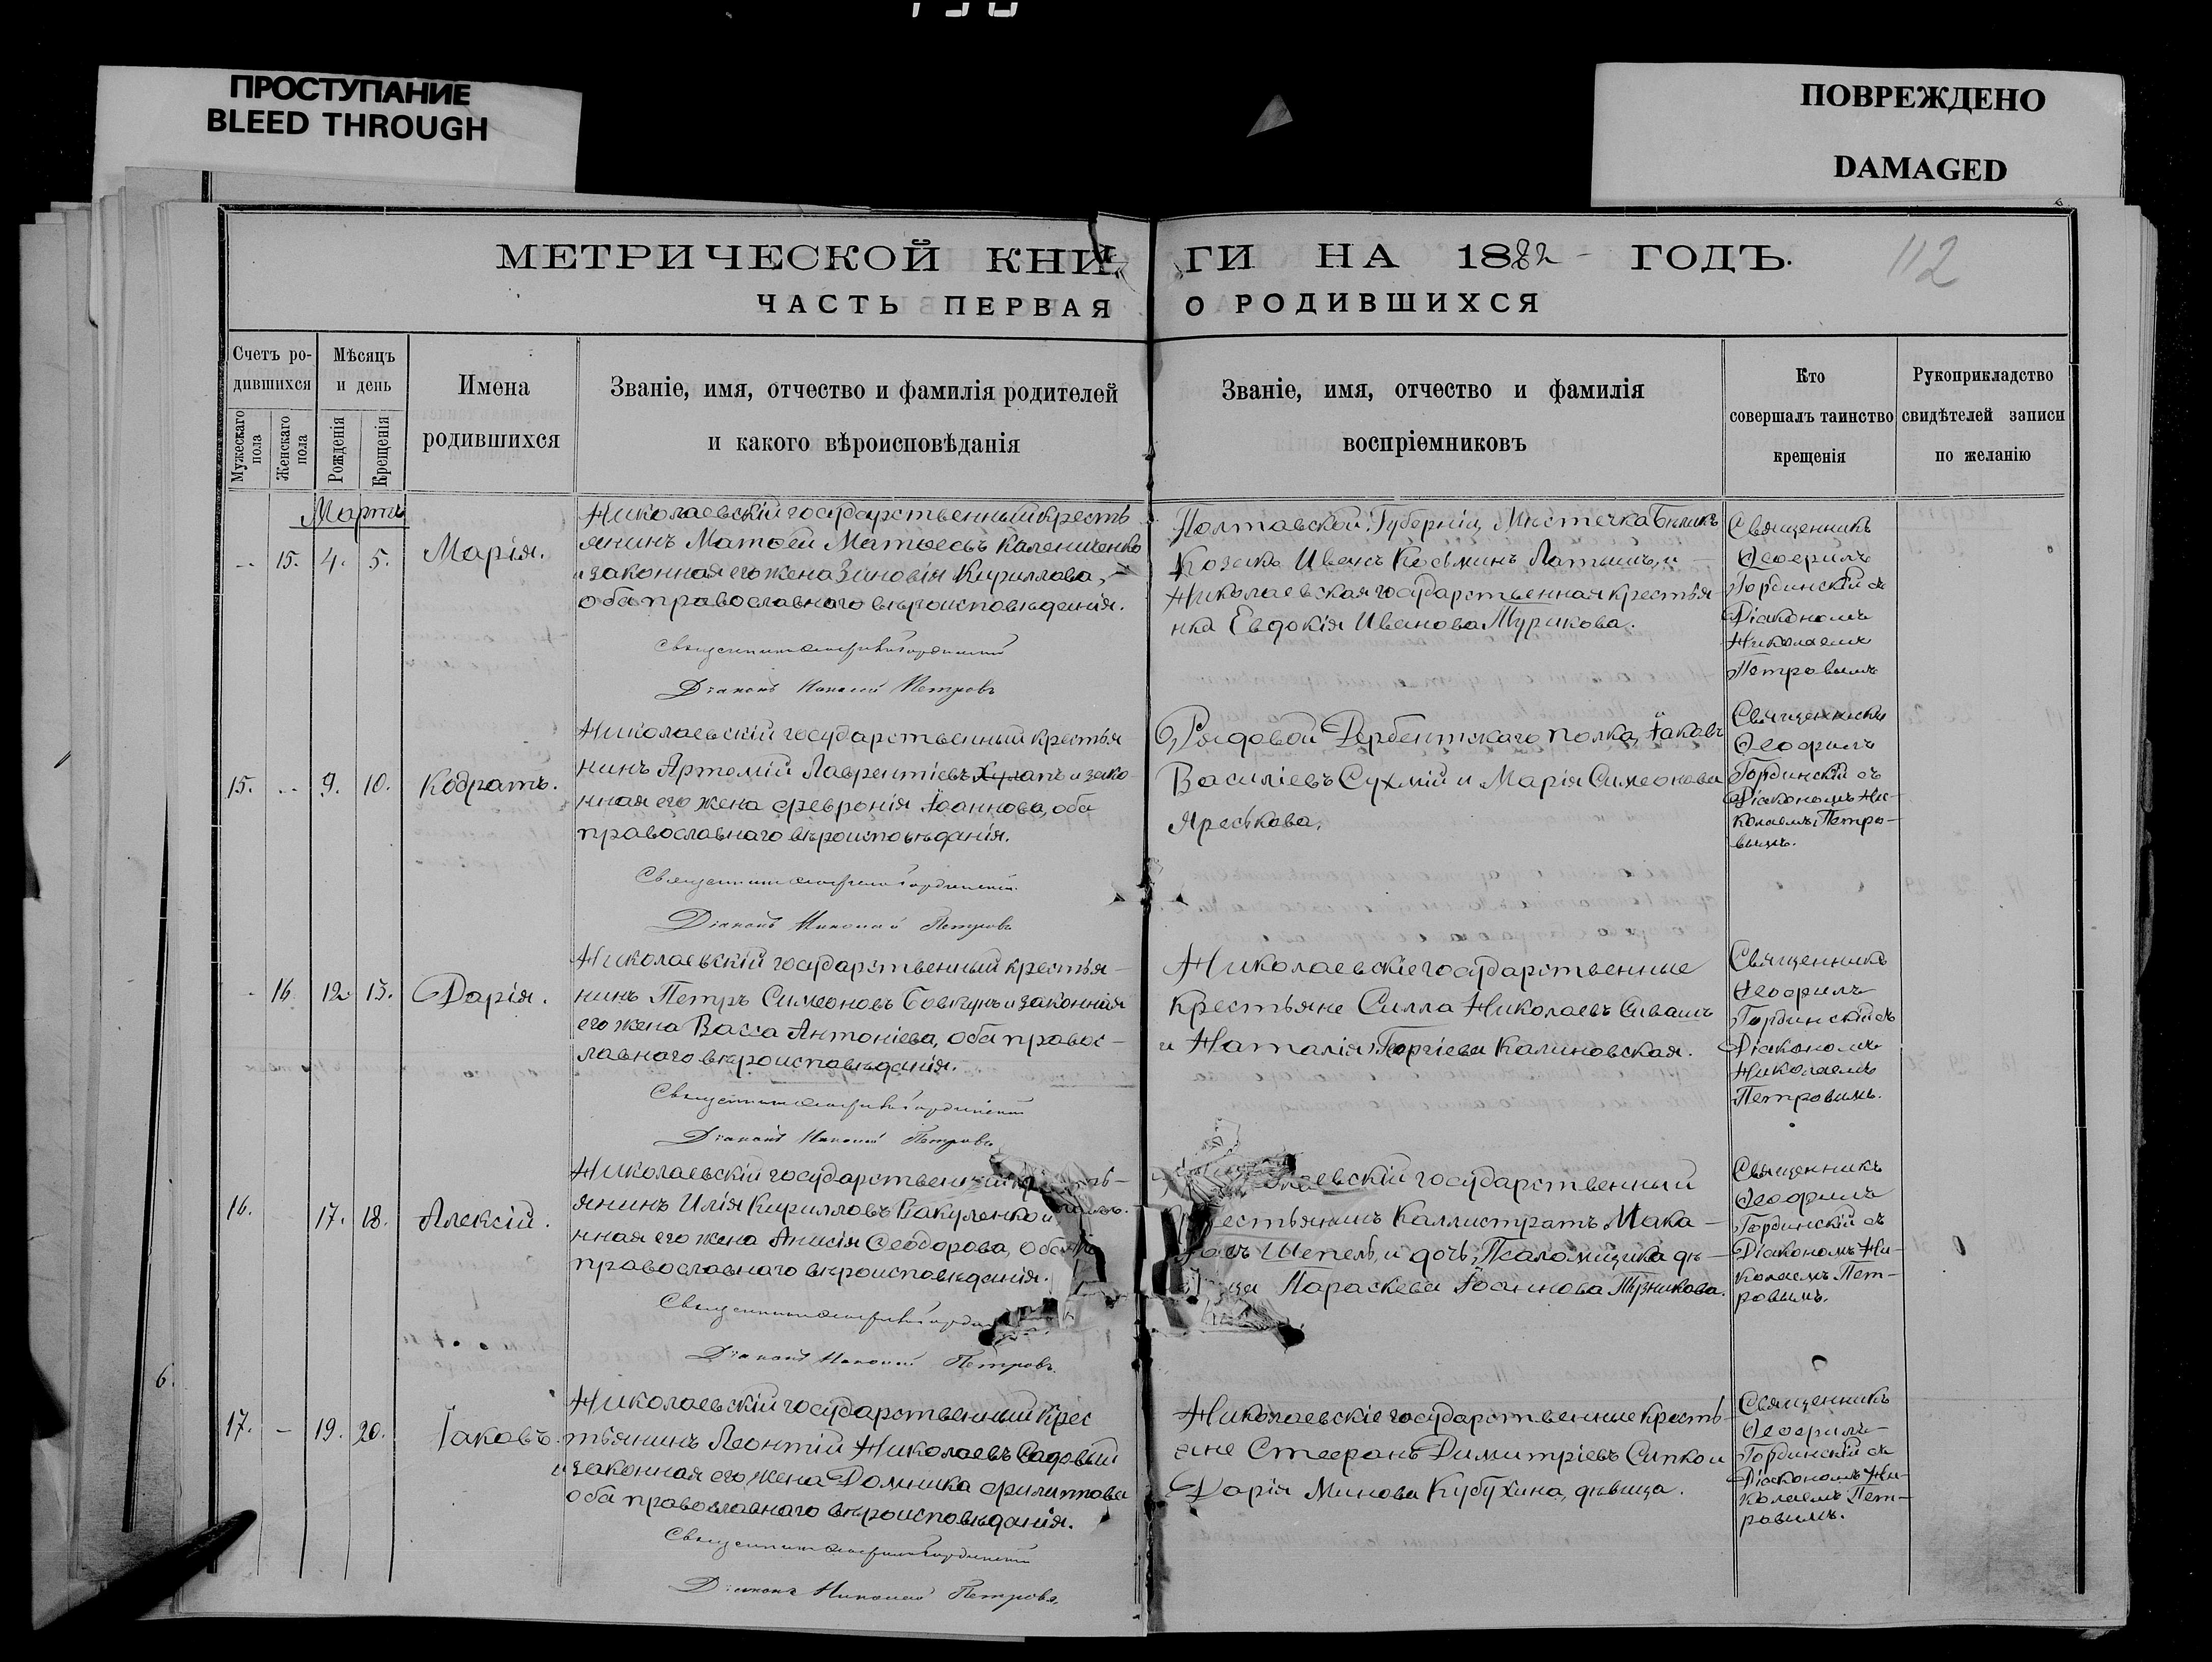 ПРОСТУПАНИЕ
BLEED THROUGH
ПОВРЕЖДЕНО
DAMAGED
МЕТРИЧЕСКОЙ КНИГИ НА 1882 ГОДЪ.
112
ЧАСТЬ ПЕРВАЯ О РОДИВШИХСЯ
Счетъ ро-
дившихся
Мужескаго пола
Женскаго пола
Мѣсяцъ
и день
Рожденія
Крещенія
Имена
родившихся
Званіе, имя, отчество и фамилія родителей
и какого вѣроисповѣданія
Званіе, имя, отчество и фамилія
воспріемниковъ
Кто
совершалъ таинство
крещенія
Рукоприкладство
свидѣтелей записи
по желанію
Мартъ
15. 4. 5. Марія.
Николаевскій государственный кресть
янинъ Матѳей Матѳеевъ Калениченко
и законная его жена Зиновія Кириллова,
оба православнаго вѣроисповѣданія.
Діаконъ Николай Петровъ
Полтавской Губерніи, Мѣстечка
Козакъ Иванъ Косьминъ Латышъ, и
Николаевская государственная крестья-
нка Евдокія Иванова Турикова.
Священникъ
Ѳеофилъ
Гординскій съ
Діакономъ
Николаемъ
Петровымъ
15. 9. 10. Кодратъ.
Николаевскій государственный крестья
нинъ Артемій Лаврентіевъ и зако-
нная его жена Февронія Іоаннова, оба
православнаго вѣроисповѣданія.
Діаконъ Николай Петровъ
Рядовой Дербентскаго полка, Іаковъ
Василіевъ Сухмій и Марія Симеонова
Яреськова.
Священникъ
Ѳеофилъ
Гординскій съ
Діакономъ Ни-
колаемъ Петро-
вымъ.
16 12 13. Дарія.
Николаевскій государственный крестья-
нинъ Петръ Симеоновъ Бовкунъ и законная
его жена Васса Антоніева, оба правос-
лавнаго вѣроисповѣданія.
Діаконъ Николай Петровъ
Николаевскіе государственные
крестьяне Силла Николаевъ Сивашъ
и Наталія Георгіева Калиновская.
Священникъ
Ѳеофилъ
Гординскій съ
Діакономъ
Николаемъ
Петровымъ.
16. 17. 18. Алексій.
Николаевскій государственный
янинъ Илія Кирилловъ Вакуленко и
нная его жена Анисія Ѳеодорова, оба
православнаго вѣроисповѣданія.
Діаконъ Николай Петровъ.
государственный
Каллистратъ Мака-
Шепель, и дочь Псаломщика дѣ-
Параскева Іоаннова
Священникъ
Ѳеофилъ
Гординскій съ
Діакономъ Ни-
колаемъ Пет-
ровымъ.
6.
17. - 19. 20. Іаковъ.
Николаевскій государственный крес
тьянинъ Леонтій Николаевъ Садовый
и законная его жена Домника Филиппова
оба православнаго вѣроисповѣданія.
Діаконъ Николай Петровъ.
Николаевскіе государственные кресть-
яне Стефанъ Димитріевъ Сипко и
Дарія Минова Кубухина, дѣвица.
Священникъ
Ѳеофилъ
Гординскій съ
Діакономъ Ни-
колаемъ Пет-
ровымъ.